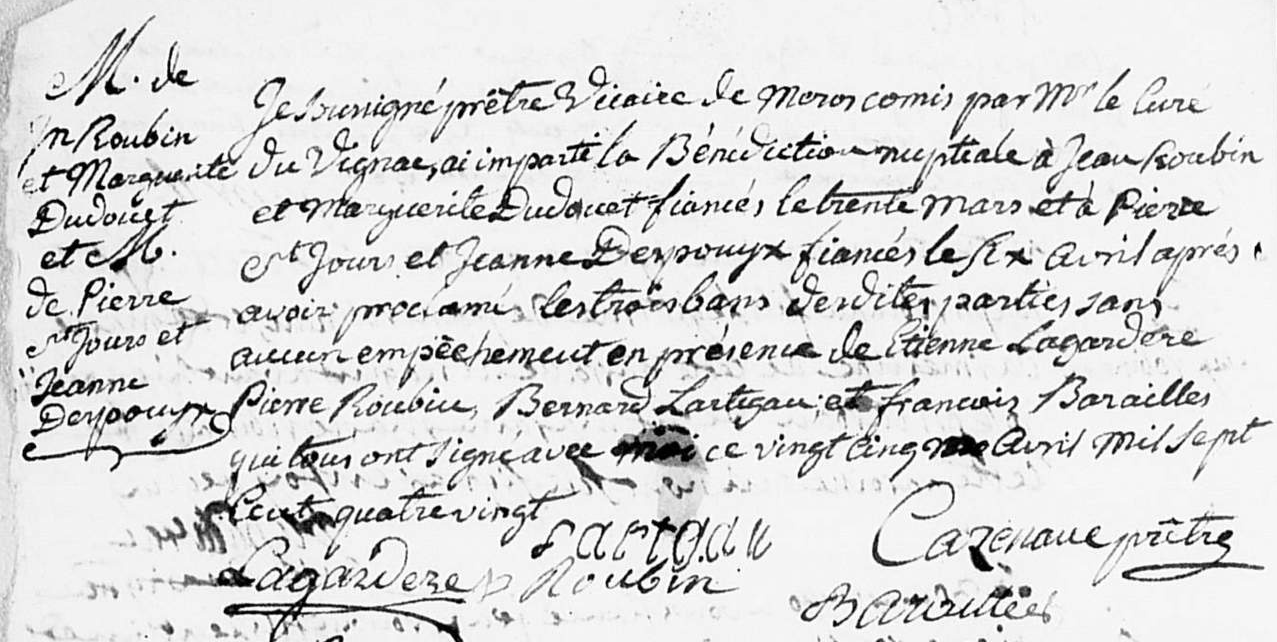 M. de
Jn Roubin
et Marguerite
Dudouet
et M.
de Pierre
St Jours et
Jeanne
Despouyx
Je sousigné prêtre Vicaire de Moros comis par Mr le Curé
du Vignac, ai imparti la Bénédiction nuptiale à Jean Roubin
et Marguerite Dudouet fiancés le trente Mars et à Pierre
St Jours et Jeanne Despouyx fiancés le six Avril aprés
avoir proclamé les trois bans desdites parties sans
aucun empêchement en présence de Etienne Lagardere
Pierre Roubin, Bernard Lartigau, et francois Barailles
qui tous ont signé avec moi ce vingt cinq Avril mil sept
Cent quatre vingt
Lartgau
Cazenave prêtre
Lagardere
p Roubin
Barailles